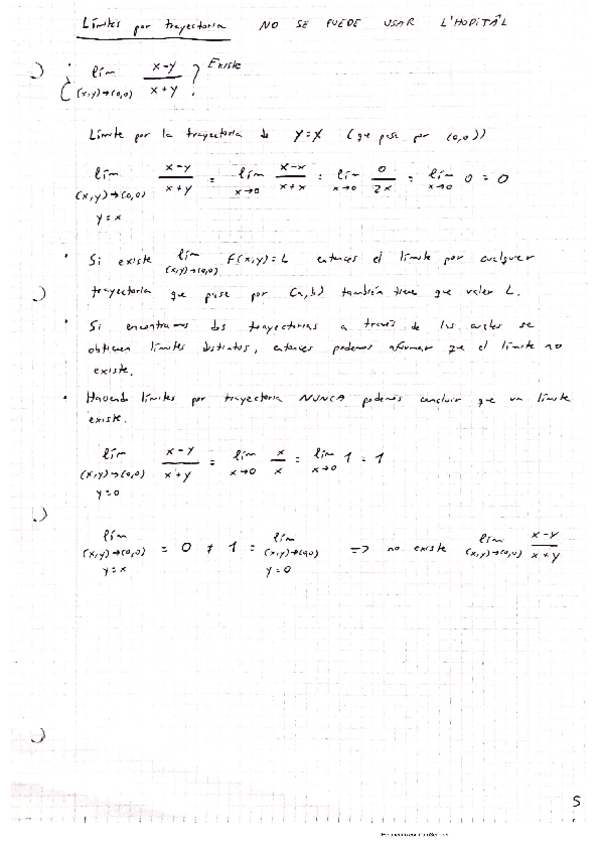 Límites por trayectoria NO SE PUEDE USAR L'HOPITÂL
¿ lím (x,y)→(0,0) x-y / x+y ? Existe
Límite por la trayectoria de y=x (que pasa por (0,0))
lím (x,y)→(0,0) y=x x-y / x+y = lím x→0 x-x / x+x = lím x→0 0 / 2x = lím x→0 0 = 0
• Si existe lím (x,y)→(0,0) F(x,y)=L entonces el límite por cualquier
trayectoria que pase por (a,b) también tiene que valer L.
• Si encontramos dos trayectorias a través de las cuales se
obtienen límites distintos, entonces podemos afirmar que el límite no
existe.
• Haciendo límites por trayectoria NUNCA podemos concluir que un límite
existe.
lím (x,y)→(0,0) y=0 x-y / x+y = lím x→0 x / x = lím x→0 1 = 1
lím (x,y)→(0,0) y=x = 0 ≠ 1 = lím (x,y)→(0,0) y=0 => no existe lím (x,y)→(0,0) x-y / x+y
5